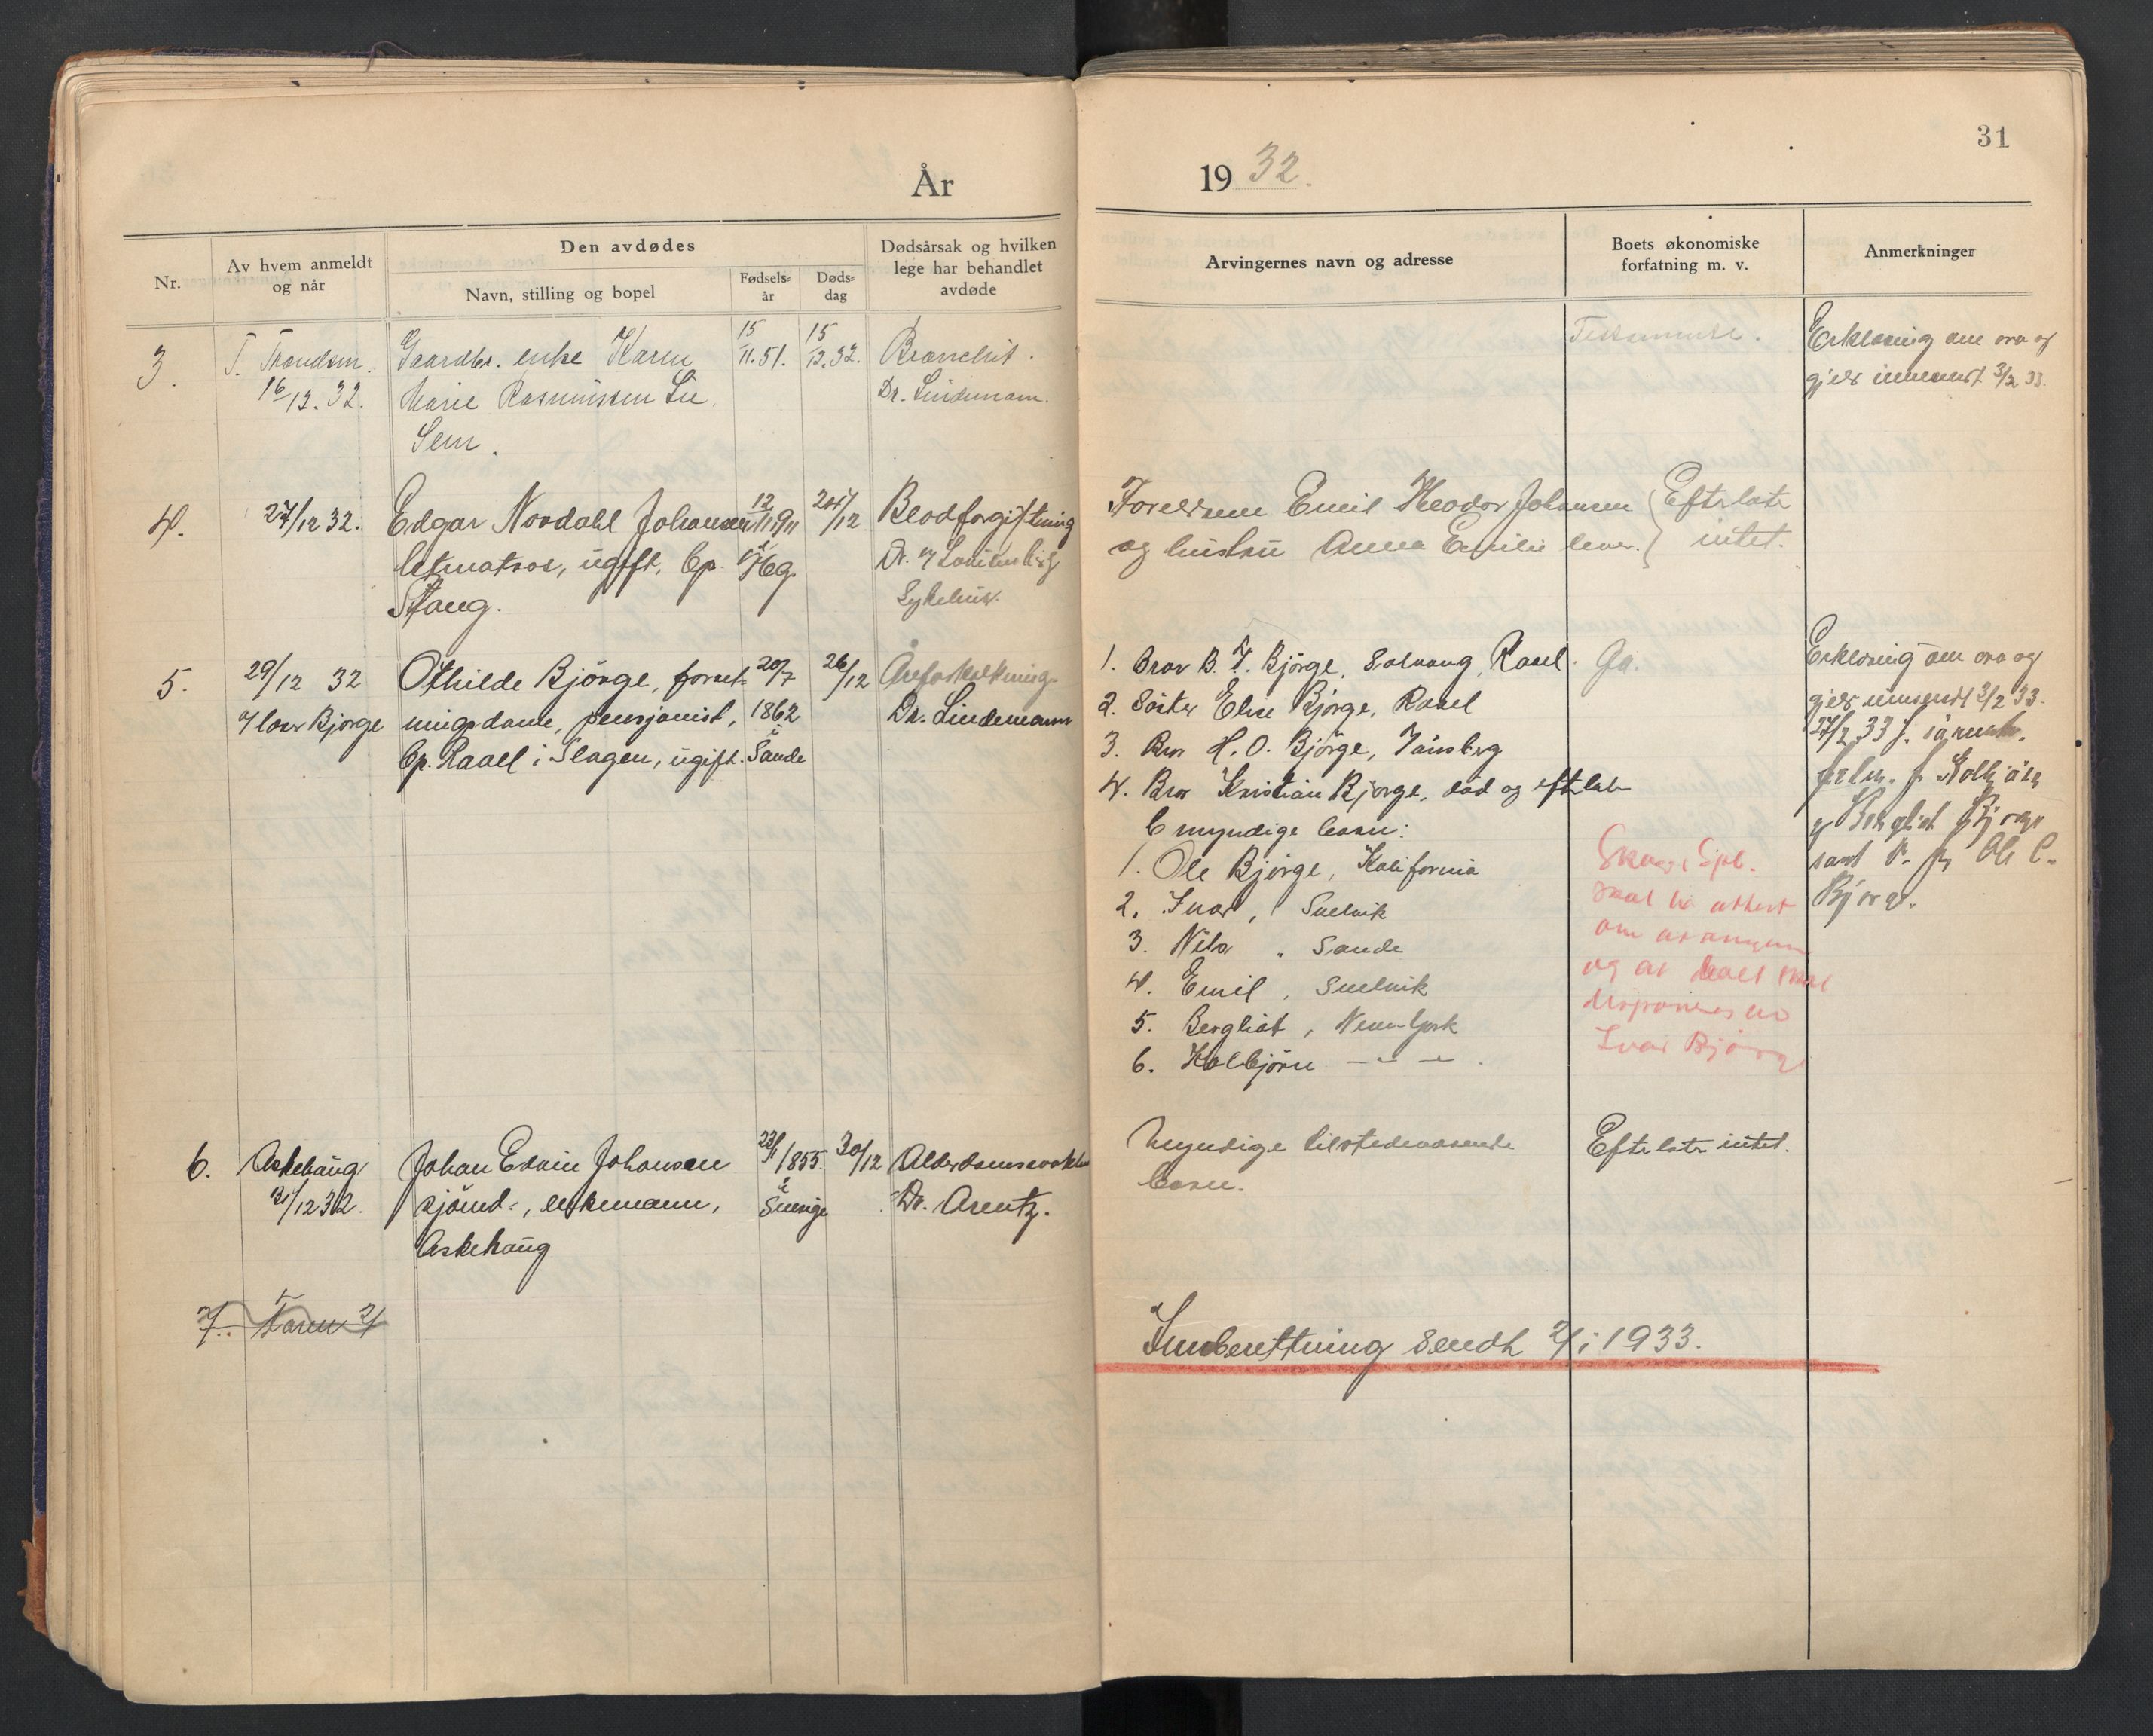 31
År 1932.
Nr.
Av hvem anmeldt
og når
Den avdødes
Navn, stilling og bopel
Fødsels-
år
Døds-
dag
Dødsårsak og hvilken
lege har behandlet
avdøde
Arvingernes navn og adresse
Boets økonomiske
forfatning m. v.
Anmerkninger
3.
T. Trondsen.
16/12. 32.
Gaardbr. enke Karen
Marie Rasmussen Lie
Sem.
15/11. 51.
15/12. 32.
Bronchit.
Dr. Lindemann.
Testamente.
Erklæring om arv og
gjeld innsendt 3/2 33.
4.
27/12 32.
Edgar Nordahl Johansen
letmatros, ugift, bp.
Stang.
12/11 1911
i Tbg.
/12
Blodforgiftning
Dr.
Sykehus.
Foreldrene Emil Theodor Johansen
og hustru Anna Emilie lever.
Efterlater
intet.
5.
29/12 32
Ivar Bjørge
Othilde Bjørge, forret-
ningsdame, pensjonist,
bp. Raael i Slagen, ugift.
20/7
1862
i
Sande
26/12
Åreforkalkning
Dr. Lindemann
1. Bror B. T. Bjørge, Solvang, Raael.
2. Søster Elise Bjørge, Raael
3. Bror H. O. Bjørge, Tønsberg
4. Bror Kristian Bjørge, død og efterlater
6 myndige barn:
1. Ole Bjørge, Kalifornia
2. Ivar, Svelvik
3. Nils " Sande
4. Emil, Svelvik
5. Bergliot, New York
6. Kolbjørn — " —.
Ja.
skal ha attest
om arvingene
og at boet skal
disponeres av
Ivar Bjørge
Erklæring om arv og
gjeld innsendt 3/2 33.
27/2 33 f.
f. Kolbjørn
og Bergliot Bjørge
samt
Bjørge.
6.
Askehaug
31/12 32.
Johan Edvin Johansen
sjømd-, enkemann,
Askehaug
23/1 1855.
i
Sverige
30/12
Alderdomssvakhet
Dr. Arentz.
Myndige tilstedeværende
barn.
Efterlater intet.
7. Karen
Innberettning sendt 2/1 1933.